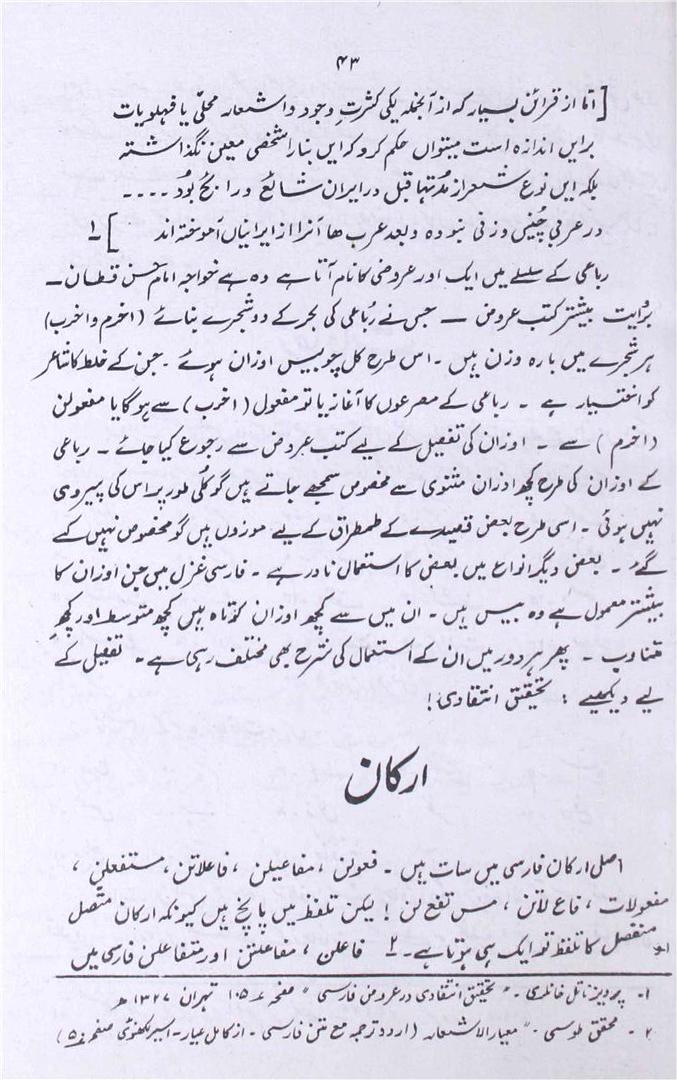 ۴۳
[امّا از قرائن بسیار که از آنجملہ یکی کثرتِ وجود و اشعار محلّی یا فہلویات
برایں اندازہ است میتواں حکم کرد کہ ایں بنا را شخصی معین نگذاشتہ
بلکہ ایں نوع شعر از مدتہا قبل در ایران شائع و رایج بُود ....
در عربی چُنیں وزنی نبودہ و بعد عرب ها آنرا از ایرانیاں آموختہ اند] ۱
رباعی کے سلسلے میں ایک اور عروضی کا نام آتا ہے وہ ہے خواجہ امام حسن قطان ــ
بروایت بیشتر کتب عروض ــ جس نے رُباعی کی بحر کے دو شجرے بنائے (اخرم و اخرب)
ہر شجرے میں بارہ وزن ہیں ۔ اس طرح کل چوبیس اوزان ہوئے ۔ جن کے خلط کا شاعر
کو اختیار ہے ۔ رباعی کے مصرعوں کا آغاز یا تو مفعول (اخرب) سے ہوگا یا مفعولن
(اخرم) سے ۔ اوزان کی تفصیل کے لیے کتب عروض سے رجوع کیا جائے ۔ رباعی
کے اوزان کی طرح کچھ اوزان مثنوی سے مخصوص سمجھے جاتے ہیں گو کلّی طور پر اس کی پیروی
نہیں ہوئی ۔ اسی طرح بعض قصیدے کے طمطراق کے لیے موزوں ہیں گو مخصوص نہیں کیے
گئے ۔ بعض دیگر انواع میں بعض کا استعمال نادر ہے ۔ فارسی غزل میں جن اوزان کا
بیشتر معمول ہے وہ بیس ہیں ۔ ان میں سے کچھ اوزان کوتاہ ہیں کچھ متوسط اور کچھ
متناوب ۔ پھر ہر دور میں ان کے استعمال کی شرح بھی مختلف رہی ہے ۔ تفصیل کے
لیے دیکھیے : تحقیق انتقادی!
ارکان
اصلی ارکان فارسی میں سات ہیں ۔ فعولن ، مفاعیلن ، فاعلاتن ، مستفعلن ،
مفعولات ، فاع لاتن ، مس تفع لن ! لیکن تلفظ میں پانچ ہیں کیونکہ ارکان متّصل
او منفصل کا تلفظ تو ایک ہی ہوتا ہے ۔ ۲ فاعلن ، مفاعلتن اور متفاعلن فارسی میں
۱۔ پرویز ناتل خانلری ۔ "تحقیق انتقادی در عروض فارسی" صفحہ ۱۰۵ تہران ۱۳۲۷ ھ
۲ ۔ محقق طوسی ۔ "معیار الاشعار (اردو ترجمہ مع متن فارسی ۔ از کامل عیار ۔ اسیر لکھنوی صفحہ ۵۰)